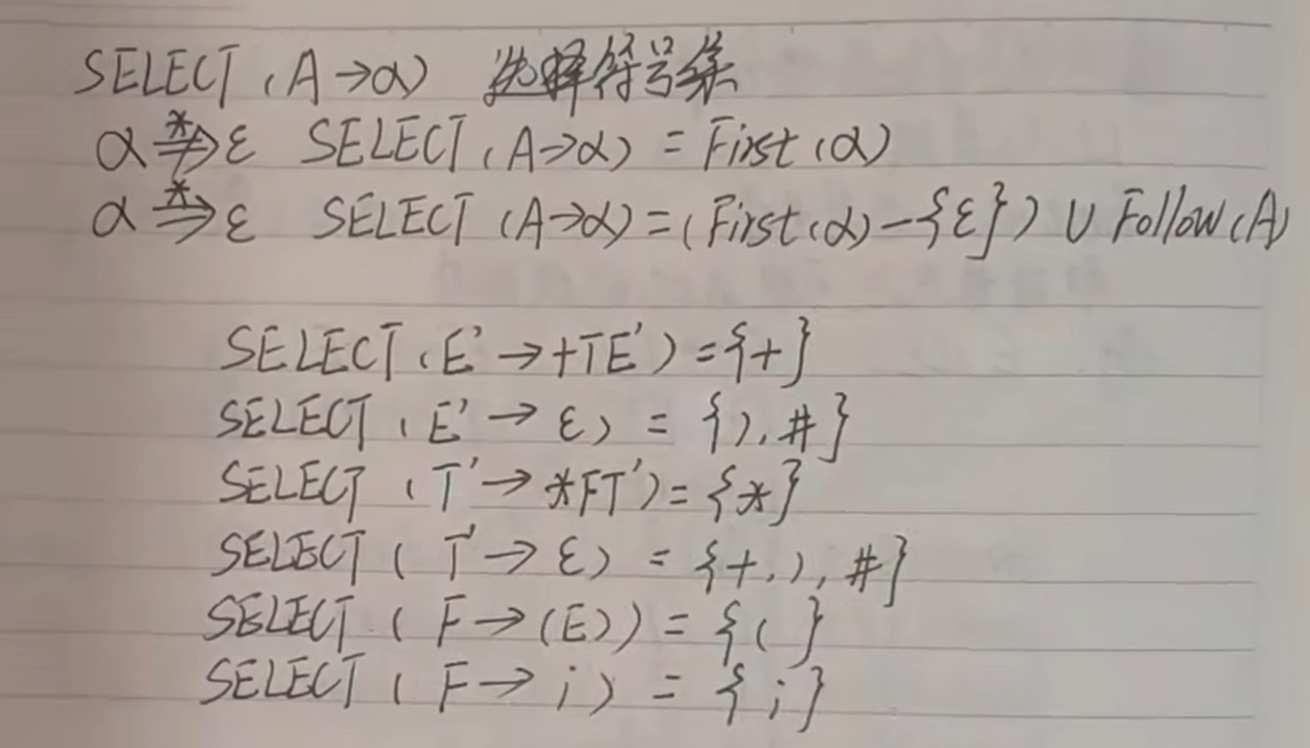 SELECT(A→α) 选择符号集
α *⇏ ε SELECT(A→α) = First(α)
α *⇒ ε SELECT(A→α)=(First(α)-{ε}) ∪ Follow(A)
SELECT(E'→+TE')={+}
SELECT(E'→ε) = {),#}
SELECT(T'→*FT')={*}
SELECT(T'→ε) = {+,),#}
SELECT(F→(E))={(}
SELECT(F→i) = {i}